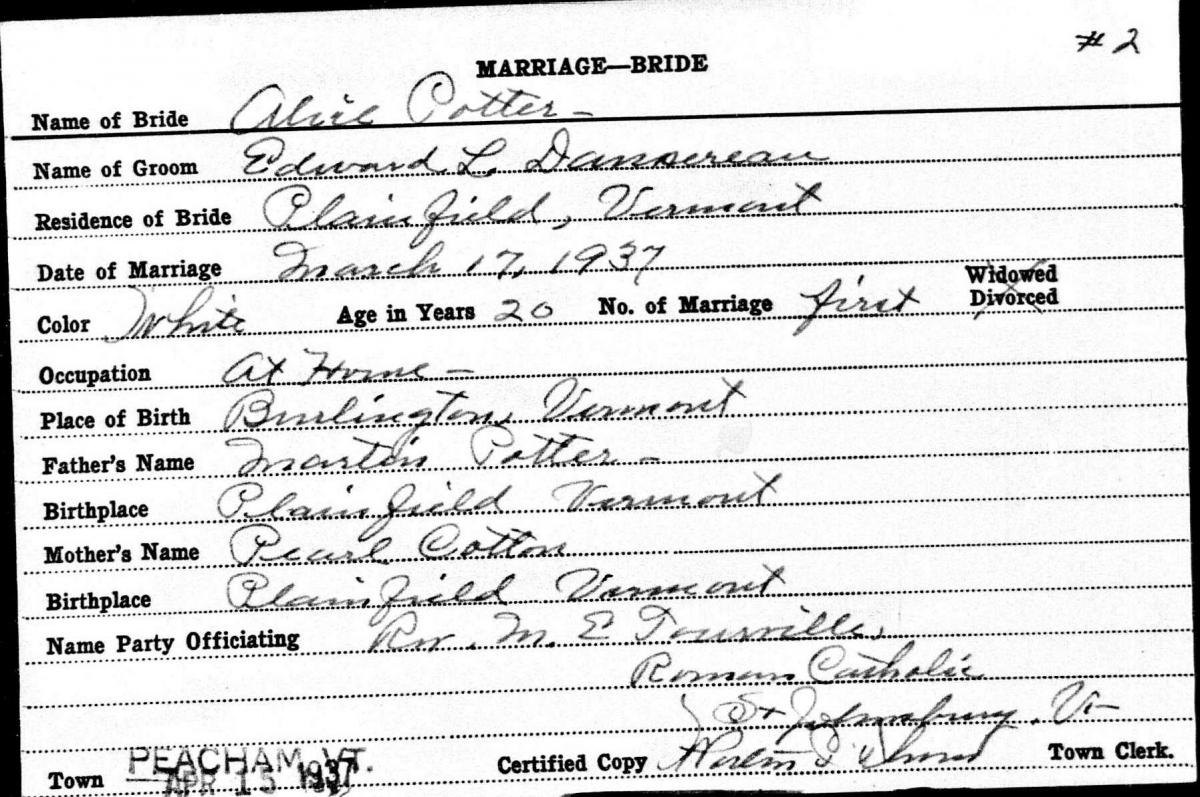 # 2
MARRIAGE—BRIDE
Name of Bride Alice Potter -
Name of Groom Edward L. Dansereau
Residence of Bride Plainfield, Vermont
Date of Marriage March 17, 1937
Color White Age in Years 20 No. of Marriage first Widowed Divorced
Occupation At Home -
Place of Birth Burlington, Vermont
Father's Name Martin Potter -
Birthplace Plainfield Vermont
Mother's Name Pearl Cotton
Birthplace Plainfield Vermont
Name Party Officiating Rev. M. E Tourville,
Roman Catholic
St Johnsbury, Vt
Town PEACHAM, VT. Certified Copy Town Clerk.
APR 15 1937